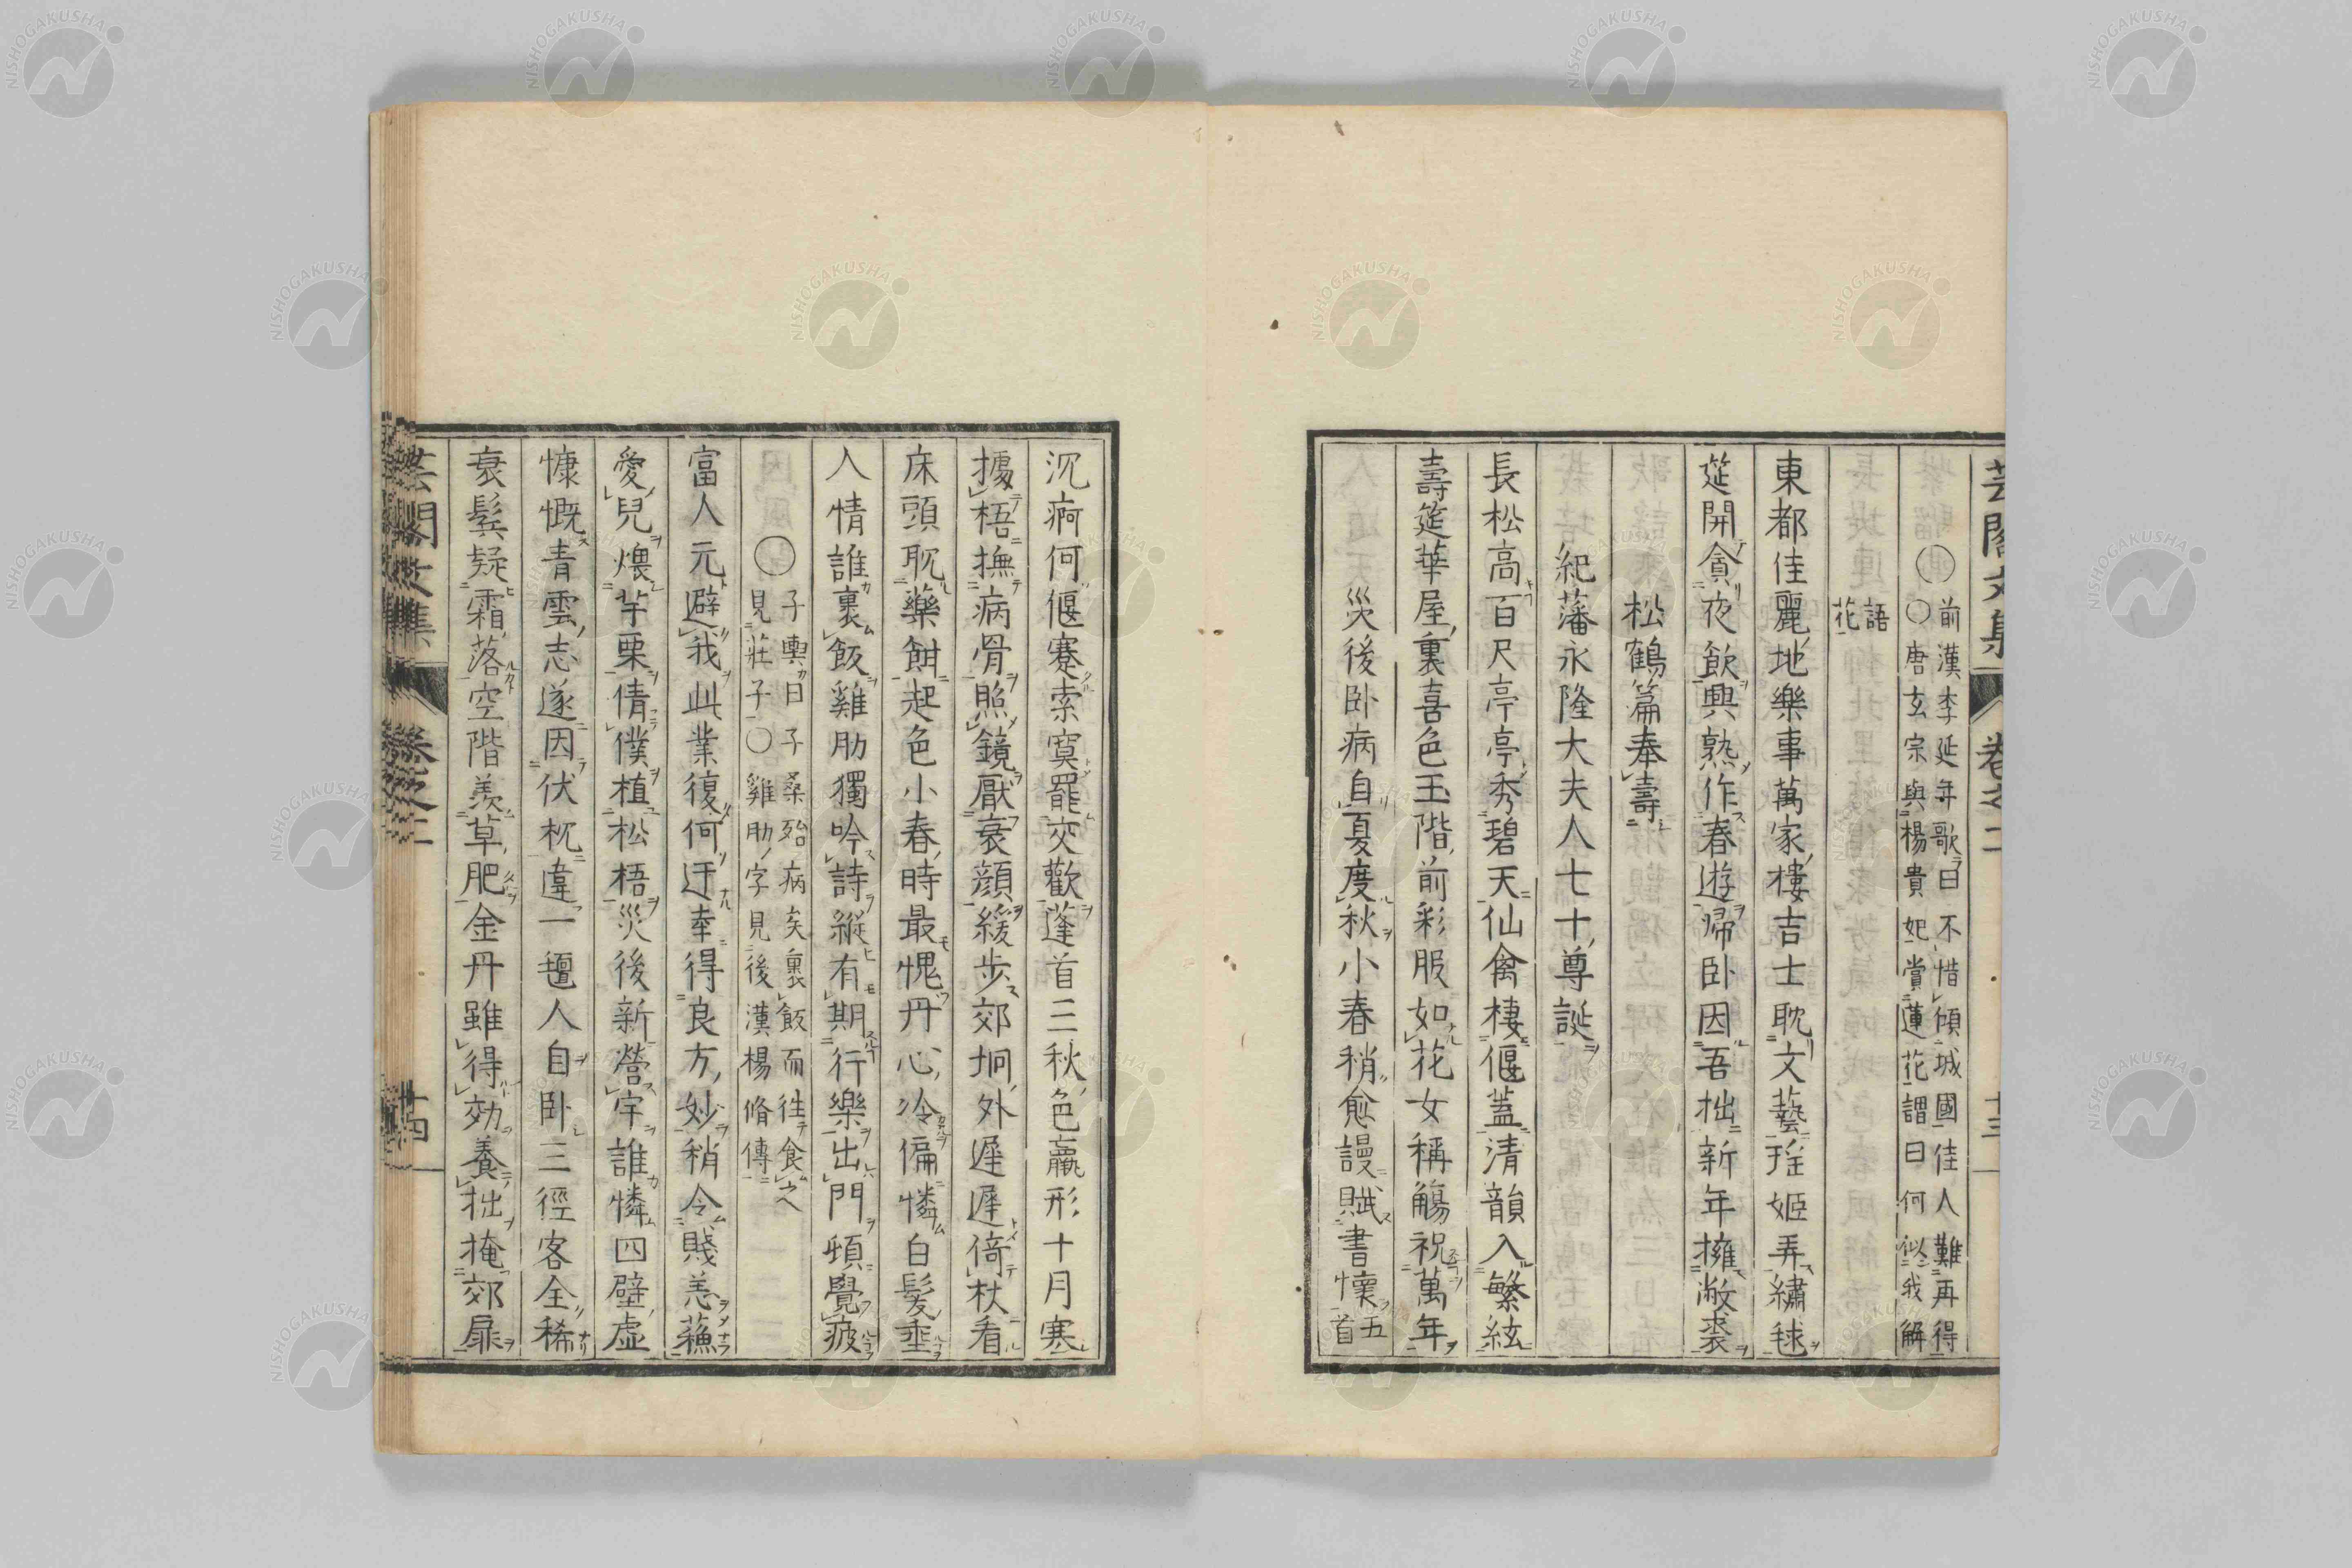 芸閣文集 卷之二 十三
○前漢李延年歌曰不惜傾城國佳人難再得
○唐玄宗與楊貴妃賞蓮花謂曰何似我解
語
花
東都佳麗地樂事萬家樓吉士耽文藝姬弄繡毬
筵開貪夜飲興熟作春遊帰卧因吾拙新年擁敝裘
松鶴篇奉壽
紀藩永隆大夫人七十尊誕
長松高百尺亭亭秀碧天仙禽棲偃蓋清韻入繁絃
壽筵華屋裏喜色玉階前彩服如花女稱觴祝萬年
災後卧病自夏度秋小春稍愈謾賦書懷五首
沉痾何偃蹇索寞罷交歡蓬首三秋色羸形十月寒
據梧撫病骨照鏡厭衰顔緩步郊坰外遲遲倚杖看
床頭耽藥餌起色小春時最愧丹心冷偏憐白髪垂
人情誰裹飯雞肋獨吟詩縱有期行樂出門頓覺疲
○子輿曰子桑殆病矣裹飯而往食之
見莊子○雞肋字見後漢楊脩傳
富人元避我此業復何迂幸得良方妙稍令賤恙蘇
愛兒煨芋栗倩僕植松梧災後新營宇誰憐四壁虚
慷慨青雲志遂因伏枕違一氊人自卧三徑客全稀
衰鬂疑霜落空階羨草肥金丹雖得効養拙掩郊扉
芸閣文集 卷之二 十四
NISHOGAKUSHA